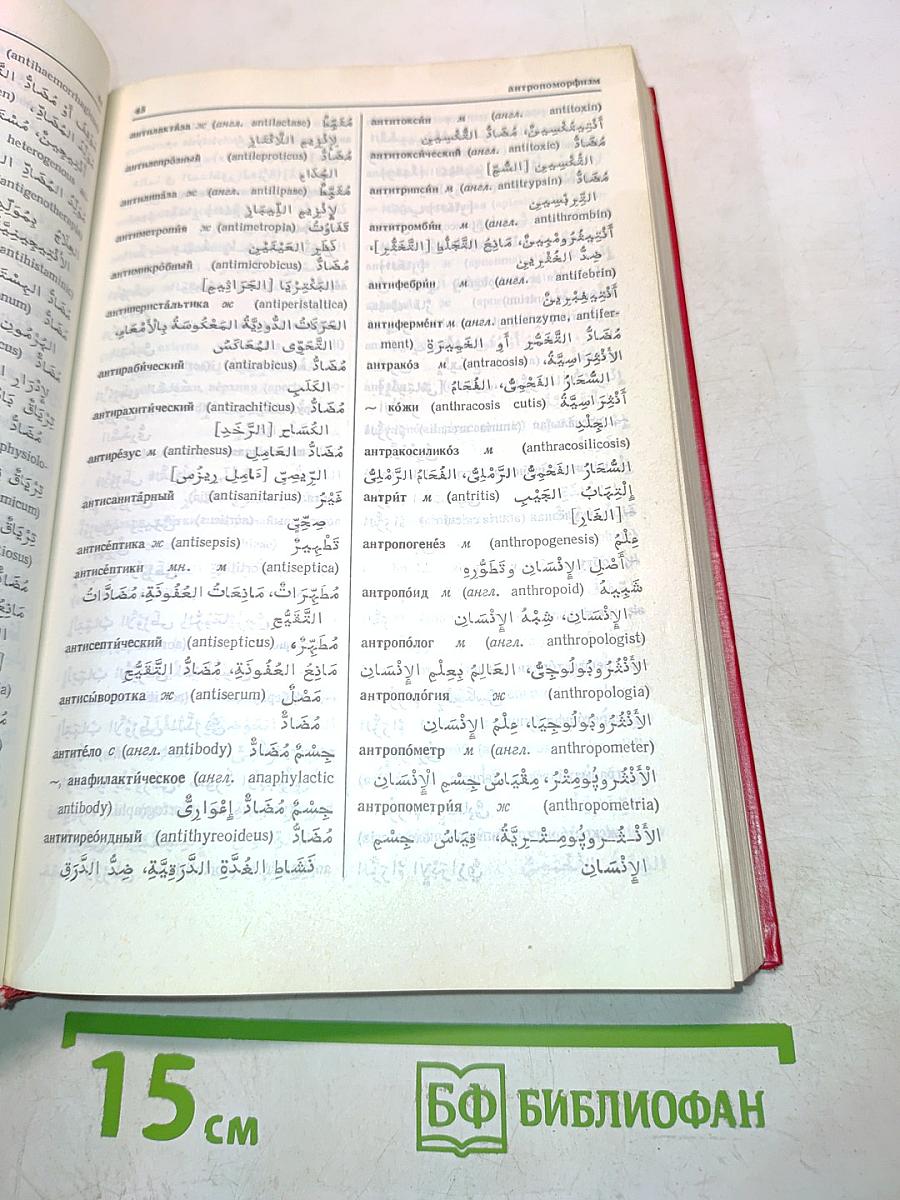 (antihaemorrhagicus)
heterogenous
(antigenotherapia)
antihistaminic)
physiolo-
45
антропоморфизм
антилакта́за ж (англ. antilactase) مُثَبِّطُ
لإِنْزِيمِ اللَّاكْتَازِ
антилепро́зный (antileproticus) مُضَادُّ
الجُذَامِ
антилипа́за ж (англ. antilipase) مُثَبِّطُ
لإِنْزِيمِ اللِّيبَازِ
антиметропи́я ж (antimetropia) تَفَاوُتُ
نَظَرِ العَيْنَيْنِ
антимикро́бный (antimicrobicus) مُضَادُّ
البَكْتِرْيَا [الجَرَاثِيمِ]
антиперистáльтика ж (antiperistaltica)
الحَرَكَاتُ الدُّودِيَّةُ المَعْكُوسَةُ بِالأَمْعَاءِ،
التَّحَوِّى المُعَاكَسُ
антираби́ческий (antirabicus) مُضَادُّ
الكَلَبِ
антирахити́ческий (antirachiticus) مُضَادُّ
الكُسَاحِ [الرَّخَدِ]
антире́зус м (antirhesus) مُضَادُّ العَامِلِ
الرِّيصِيِّ [عَامِلِ رِيزُس]
антисанита́рный (antisanitarius) غَيْرُ
صِحِّيٍّ
антисе́птика ж (antisepsis) تَطْهِيرٌ
антисе́птики мн. м (antiseptica)
مُطَهِّرَاتٌ، مَانِعَاتُ العُفُونَةِ، مُضَادَّاتُ
التَّقَيُّحِ
антисепти́ческий (antisepticus) مُطَهِّرٌ،
مَانِعُ العُفُونَةِ، مُضَادُّ التَّقَيُّحِ
антисы́воротка ж (antiserum) مَصْلٌ
مُضَادٌّ
антите́ло с (англ. antibody) جِسْمٌ مُضَادٌّ
~, анафилакти́ческое (англ. anaphylactic
antibody) جِسْمٌ مُضَادٌّ إِعْوَارِىٌّ
антитирео́идный (antithyreoideus) مُضَادُّ
نَشَاطِ الغُدَّةِ الدَّرَقِيَّةِ، ضِدُّ الدَّرَقِ
антитокси́н м (англ. antitoxin)
أَنْتِيتُكْسِينٌ، مُضَادُّ التُّكْسِينِ
антитокси́ческий (англ. antitoxic) مُضَادُّ
التُّكْسِينِ [السُّمِّ]
антитрипси́н м (англ. antitrypsin) مُضَادُّ
التِّرِبْسِينِ
антитромби́н м (англ. antithrombin)
أَنْتِيثْرُومْبِينٌ، مَانِعُ التَّجَلُّطِ [التَّخَثُّرِ]،
ضِدُّ الخَثْرِينِ
антифебри́н м (англ. antifebrin)
أَنْتِيفِبْرِينٌ
антиферме́нт м (англ. antienzyme, antifer-
ment) مُضَادُّ التَّخَمُّرِ أو الخَمِيرَةِ
антрако́з м (antracosis) الأَنْثِرَاسِيَّةُ،
السُّحَارُ الفَحْمِىُّ، الفُحَامُ
~ ко́жи (anthracosis cutis) أَنْثِرَاسِيَّةُ
الجِلْدِ
антракосилико́з м (anthracosilicosis)
السُّحَارُ الفَحْمِىُّ الرَّمْلِىُّ، الفُحَامُ الرَّمْلِىُّ
антри́т м (antritis) إِلْتِهَابُ الجَيْبِ
[الغَارِ]
антропогене́з м (anthropogenesis) عِلْمُ
أَصْلِ الإِنْسَانِ وتَطَوُّرِهِ
антропо́ид м (англ. anthropoid) شَبِيهُ
الإِنْسَانِ، شِبْهُ الإِنْسَانِ
антропо́лог м (англ. anthropologist)
الأَنْثْرُوبُولُوجِىُّ، العَالِمُ بِعِلْمِ الإِنْسَانِ
антрополо́гия ж (anthropologia)
الأَنْثْرُوبُولُوجِيَا، عِلْمُ الإِنْسَانِ
антропо́метр м (англ. anthropometer)
الأَنْثْرُوبُومِتْرُ، مِقْيَاسُ جِسْمِ الإِنْسَانِ
антропометри́я ж (anthropometria)
الأَنْثْرُوبُومِتْرِيَّةُ، قِيَاسُ جِسْمِ
الإِنْسَانِ
15 см
БФ БИБЛИОФАН